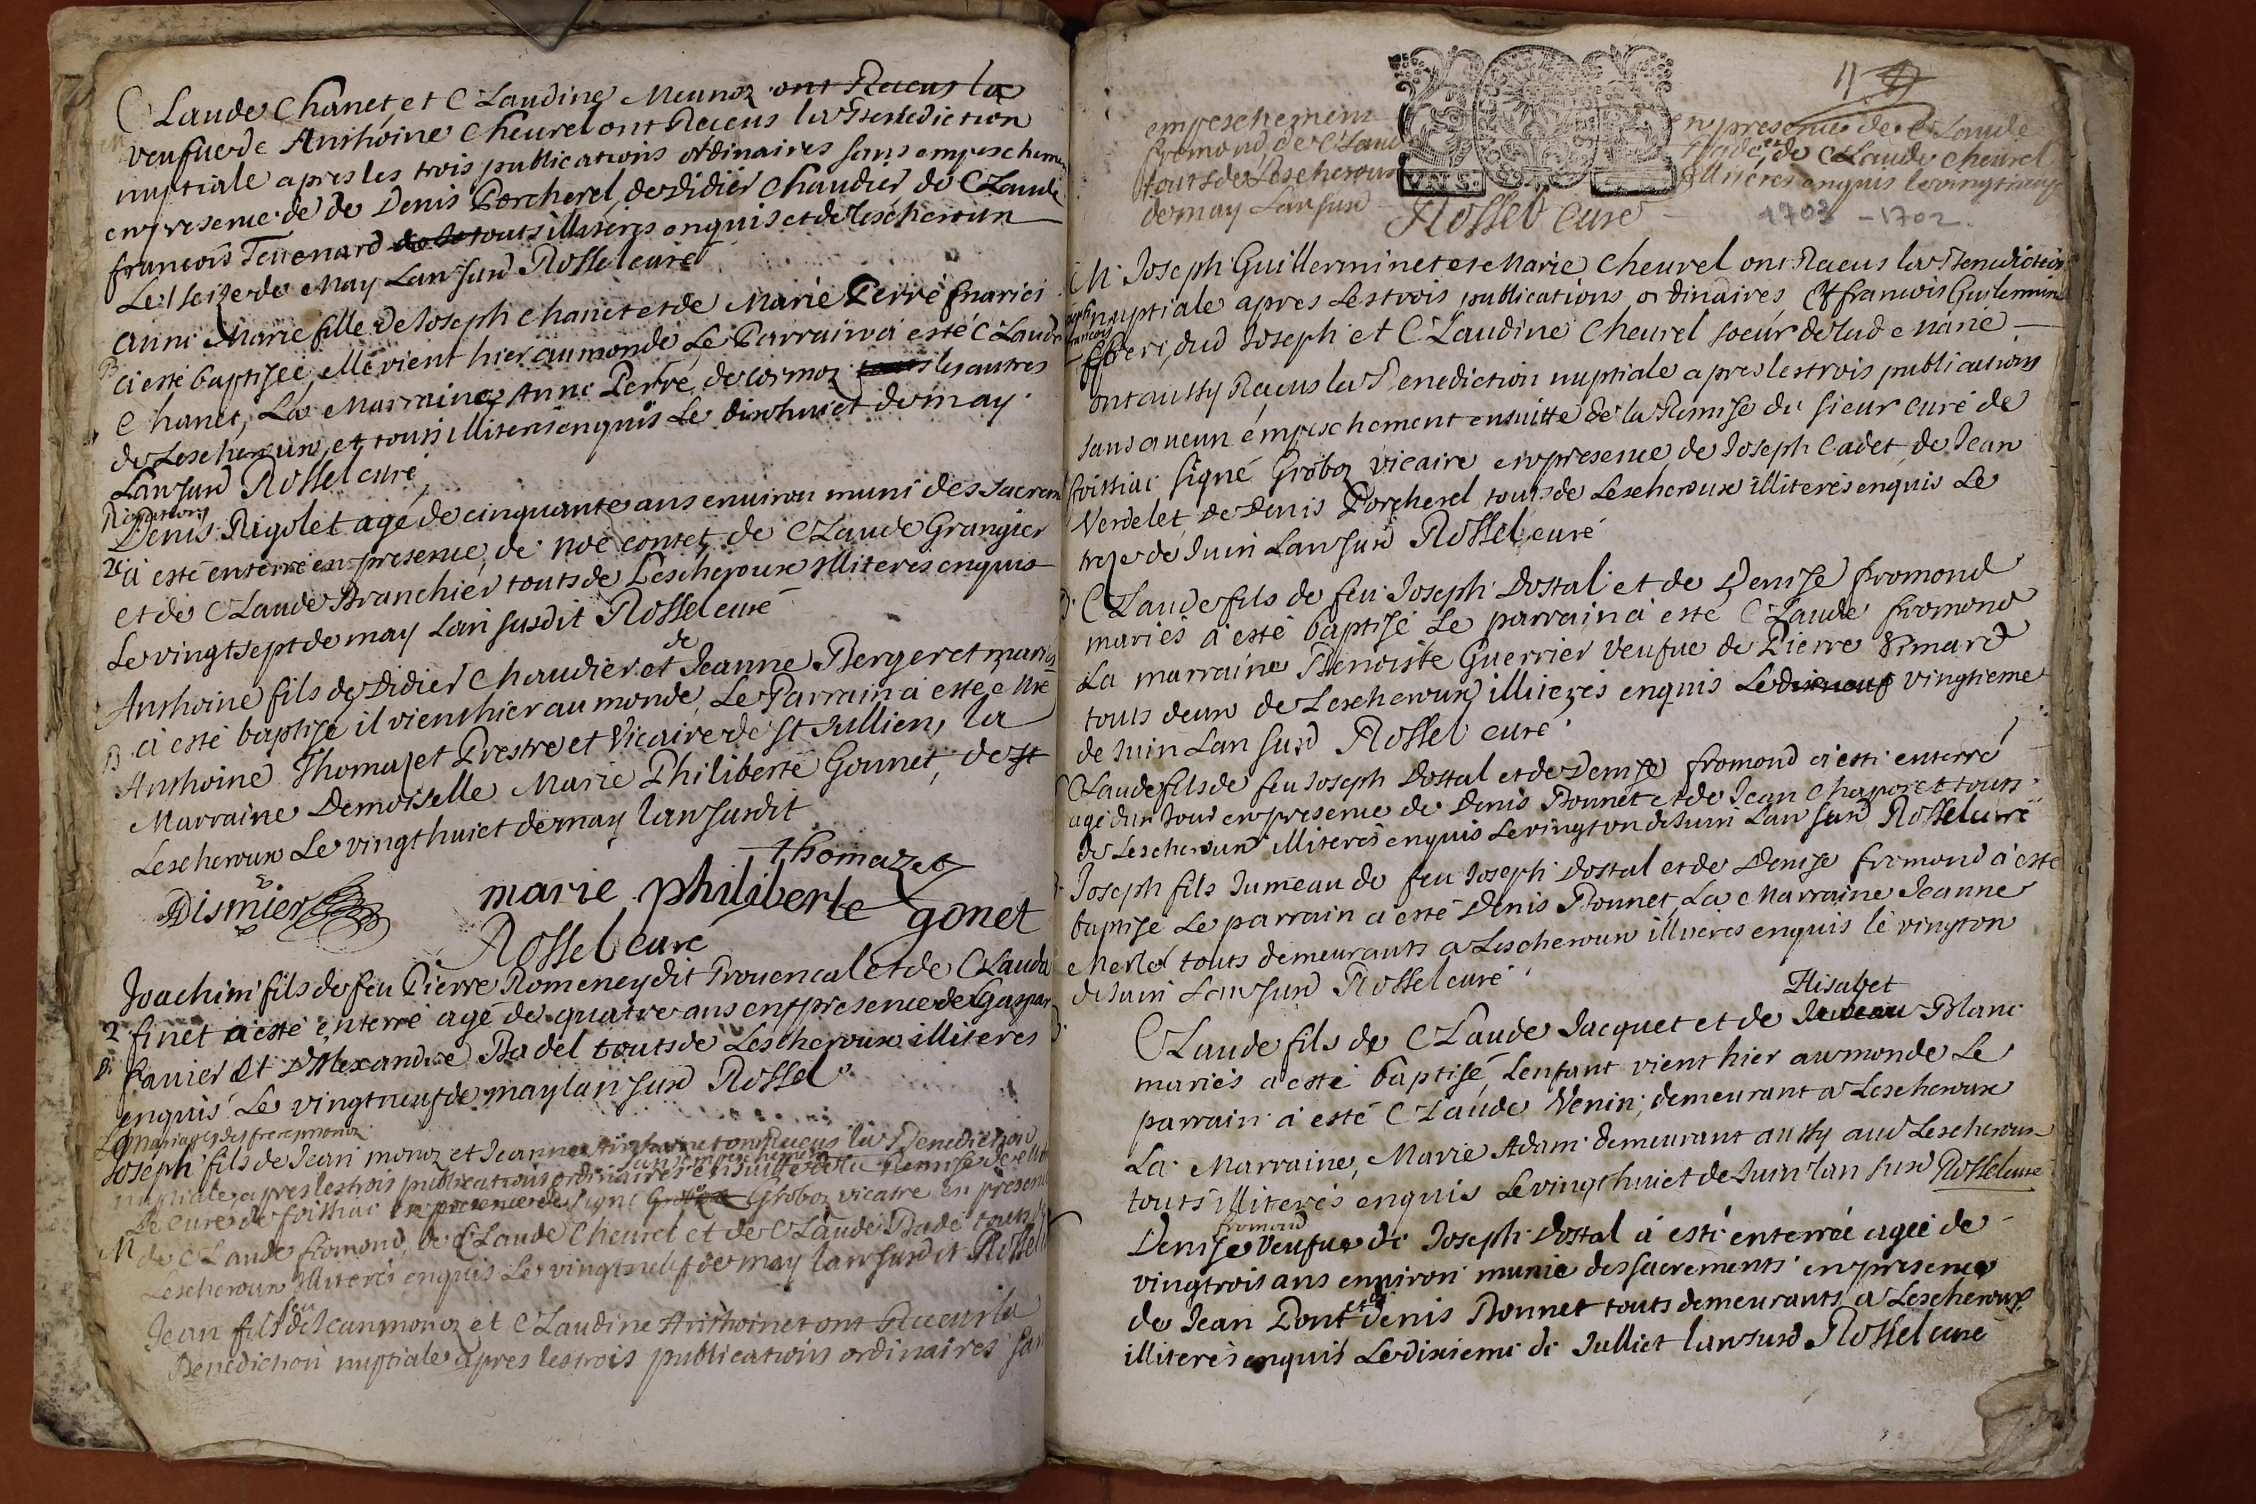 Claude Chanet et Claudine Meunoz ont Receus la
veufue de Anthoine Cheurel ont Receus la Benediction
nuptiale apres les trois publications ordinaires sans empeschemen
en presence de de Denis Porcherel, de Didier Chaudier de Claude
francois Terrenard touts illiterés enquis et de lescheroux
Le seize de May Lan susd Rossel curé
Anne Marie fille de Joseph Chanet et de Marie Perré mariés
B a esté baptisée elle vient hier au monde Le Parrain a esté Claude
Chanet, La Marraine Anne Perré, de cormoz touts les autres
de Lescheroux, et touts illiterés enquis Le dixhuict de may
Lan susd Rossel curé
Denis Rigolet agé de cinquante ans enuiron muni des sacrem
a esté enterré en presence, de Noé contet de Claude Grangier
et de Claude Branchier touts de Lescheroux illiterés enquis
Le vingt sept de may Lan susdit Rossel curé
de
Anthoine fils de Didier Chaudier et Jeanne Bergeret mariés
B a esté baptisé il vient hier au monde, Le Parrain a esté Mre
Anthoine Thomazet Prestre et Vicaire de St Jullien, la
Marraine Demoiselle Marie Philiberte Gonnet, de St
Lescheroux Le vingt huict de may lan susdit
thomazet
Dismier marie philiberte gonet
Rossel curé
Joachim fils de feu Pierre Romeney dit Prouencal et de Clauda
2 finet a esté enterré agé de quatre ans en presence de Gaspar
fauier Et D'Alexandre Badel touts de Lescheroux illiteres
enquis Le vingt neuf de may lan susd Rossel
mariages des freres monoz
Joseph fils de Jean monoz et Jeanne ont Receus la Benediction
sans empeschement
nuptiale, apres les trois publications ordinaires ensuitte de la Remise de
Le curé de foissiac en presence de signé Groboz vicaire en presen
M de Claude fromond, de Claude Cheurel et de Claude Badé touts
Lescheroux illiterés enquis Le vingt neuf de may lan susdit Rossel
feu
Jean fils de Jean monoz et Claudine Anthoinet ont Receu la
Benediction nuptiale apres les trois publications ordinaires san
11
empeschement en presence de Claude
fromond, de Claud Badé, et de Claude Cheurel
touts de Lescheroux illiterés enquis le vingtneuf
de may Lan susd
VNS.
Rossel curé
1703 - 1702
M Joseph Guillerminet et Marie Cheurel ont Receus la Benediction
nuptiale apres Les trois publications ordinaires Et francois Guilermine
frere, dud Joseph et Claudine Cheurel soeur de lad Marie
ont aussy Receus la Benediction nuptiale apres les trois publications
sans aucun empeschement ensuitte de la Remise du sieur curé de
foissiac signé Groboz vicaire en presence de Joseph Cadet, de Jean
Verdelet, De Denis Porcherel touts de Lescheroux illiterés enquis Le
treze de Juin Lan susd Rossel curé
Claude fils de feu Joseph Dostal et de Denise fromond
mariés a esté baptisé Le parrain a esté Claude fromond
La marraine Benoiste Guerrier veufue de Pierre
touts deux de Lescheroux illiterés enquis Le dixneuf vingtieme
de Juin Lan susd Rossel curé
Claude fils de feu Joseph Dostal et de Denise fromond a esté enterré
agé dun Jour en presence de Denis Bonnet et de Jean Chapon et touts
de Lescheroux illiterés enquis Le vingt un de Juin Lan susd Rossel curé
Joseph fils Jumeau de feu Joseph Dostal et de Denise fromond a esté
baptisé Le parrain a esté Denis Bonnet, La Marraine Jeanne
Merle touts demeurants a Lescheroux illiterés enquis le vingt un
de Juin Lan susd Rossel curé
Elisabet
Claude fils de Claude Jacquet et de Blanc
mariés a esté baptisé, L'enfant vient hier au monde Le
parrain a esté Claude Venin, demeurant a Lescheroux
La Marraine, Marie Adam demeurant aussy aud Lescheroux
touts illiterés enquis Le vingt huict de Juin lan susd Rossel curé
fromond
Denise veufue de Joseph Dostal a esté enterrée agée de
vingt trois ans enuiron munie des sacrements en presence
de Jean Pont et de Denis Bonnet touts demeurants a Lescheroux
illiterés enquis Le dixieme de Julliet lan susd Rossel curé